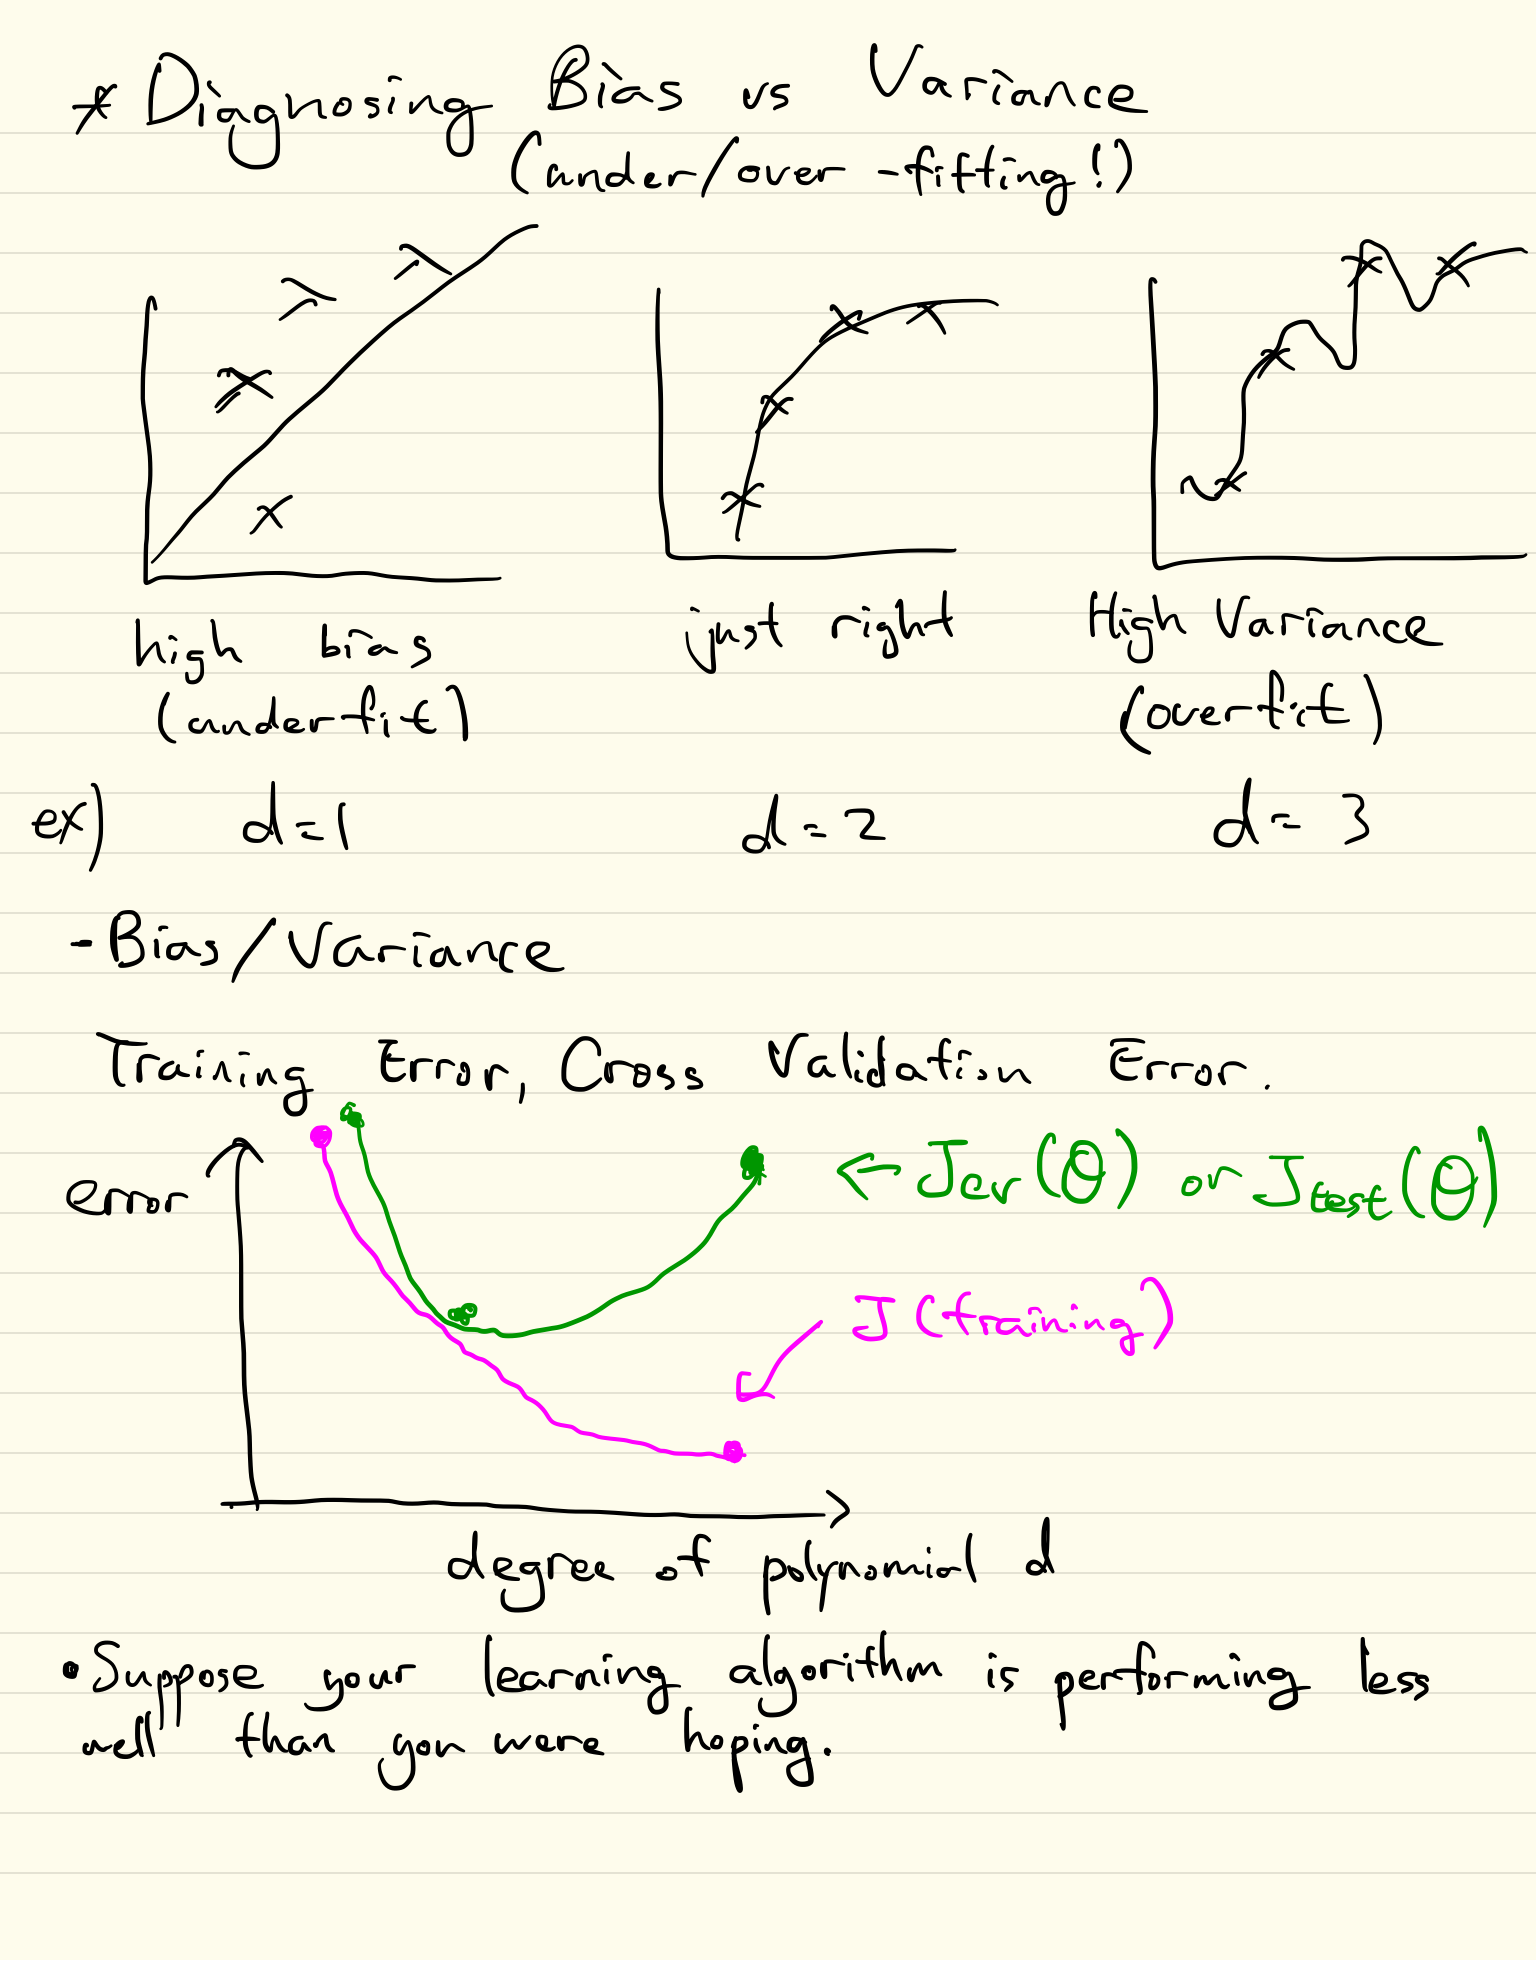 * Diagnosing Bias vs Variance
(under/over-fitting!)
high bias
(underfit)
just right
High Variance
(overfit)
ex) d=1 d=2 d=3
- Bias/Variance
Training Error, Cross Validation Error.
error
← Jcv(θ) or Jtest(θ)
J(training)
degree of polynomial d
• Suppose your learning algorithm is performing less
well than you were hoping.